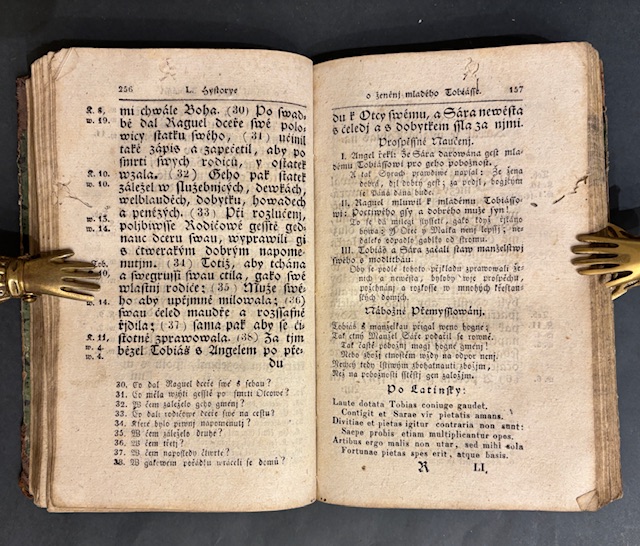 256 L. Hystorye
K. 8, mi chwále Boha. (30) Po swad-
w. 19. bě dal Raguel dceře swé polo-
wicy statku swého, (31) učinil
také zápis a zapečetil, aby po
smrti swých rodičů, y ostatek
K. 10. wzala. (32) Geho pak statek
w. 10. záležel w služebnjcých, děwkách,
welblaudjch, dobytku, howadech
a penězých. (33) Při rozlaučenj,
w. 13. poljbiwsse Rodičowé gesstě ged-
w. 14. nauc dceru swau, wyprawili gi
s čtwerařým dobrým napome-
Tob. nutjm. (34) Totiž, aby tchána
10, a swegrussi swau ctila, gako swé
wlastnj rodiče; (35) Muže swé-
w. 14. ho aby upřjmně milowala; (36)
swau čeled maudře a rozssafně
K. 11. řjdila; (37) sama pak aby se či-
w. 4. stotně zprawowala. (38) Za tjm
w. 4. běžel Tobiáš s Angelem po pře-
du
30. Co dal Raguel dceře swé s sebau?
31. Co měla wzýti gesstě po smrti Otcowě?
32. W čem záleželo geho gměnj?
33. Co dali rodičowé dceři na cestu?
34. Které bylo prwnj napomenutj?
35. W čem záleželo druhé?
36. W čem třetj?
37. W čem naposledy čtwrté?
38. W gakowém pořádku wráceli se domů?
o ženěnj mladého Tobiásse. 157
du k Otcy swému, a Sára newěsta
s čeledj a s dobytkem ssla za njmi.
Prospěssné Naučenj.
I. Angel řekl: Že Sára darowána gest mla-
dému Tobiássowi pro geho pobožnost.
A tak Syrach prawdiwě napsal: Že žena
dobrá, djl dobrý gest; za podjl, bogjcým
se Pána dána bude.
II. Raguel mluwil k mladému Tobiásso-
wi: Poctiwého gsy a dobrého muže syn!
býwá: A Otec y Matka není lepssj; ne-
daleko odpadlo gablko od stromu.
III. Tobiáš a Sára začali staw manželstwj
swého s modlitbau.
Oby se podle tohoto přjkladu zprawowali že-
nich a newěsta, byloby wjce prospěchu,
požehnánj a rozkosse w mnohých křestan-
ských domjch.
Nábožné Přemysslowánj.
Tobiáš s manželkau přigal wěno hogné;
Tak ctný Manžel Sáře podařil se rowně.
Tak často pobožnj magj hogné gměnj!
Nebo zbožj ctnostem wždy na odpor nenj.
Nechcy tedy lstiwým zbohatnauti zbožjm,
Než na pobožnosti sstěstj gen založjm.
Po Latinsky:
Laute dotata Tobias coniuge gaudet.
Contigit et Sarae vir pietatis amans.
Divitiae et pietas igitur contraria non sunt:
Saepe probis etiam multiplicantur opes.
Artibus ergo malis non utar, sed mihi sola
Fortunae pietas spes erit, atque basis.
R LI.